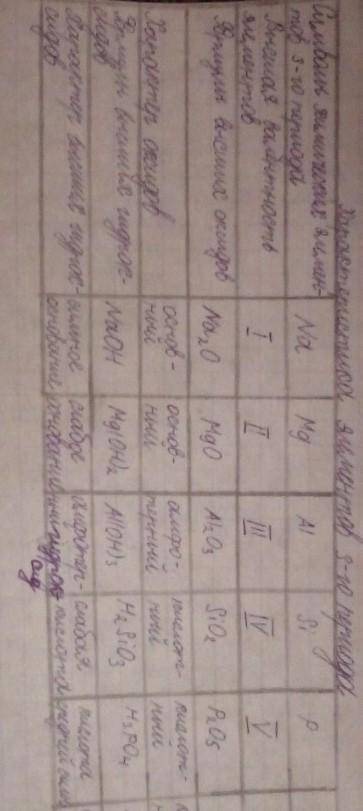 Характеристика элементов 3-го периода
Символы химических элемен-
тов 3-го периода
Na
Mg
Al
Si
P
Высшая валентность
элементов
I
II
III
IV
V
Формулы высших оксидов
Na2O
MgO
Al2O3
SiO2
P2O5
Характер оксидов
основ-
ный
основ-
ный
амфо-
терный
кислот-
ный
кислот-
ный
Формулы высших гидрок-
сидов
NaOH
Mg(OH)2
Al(OH)3
H2SiO3
H3PO4
Характер высших гидрок-
сидов
сильное
основание
слабое
основание
амфотер-
ный
слабая
кислота
кислота
средней силы